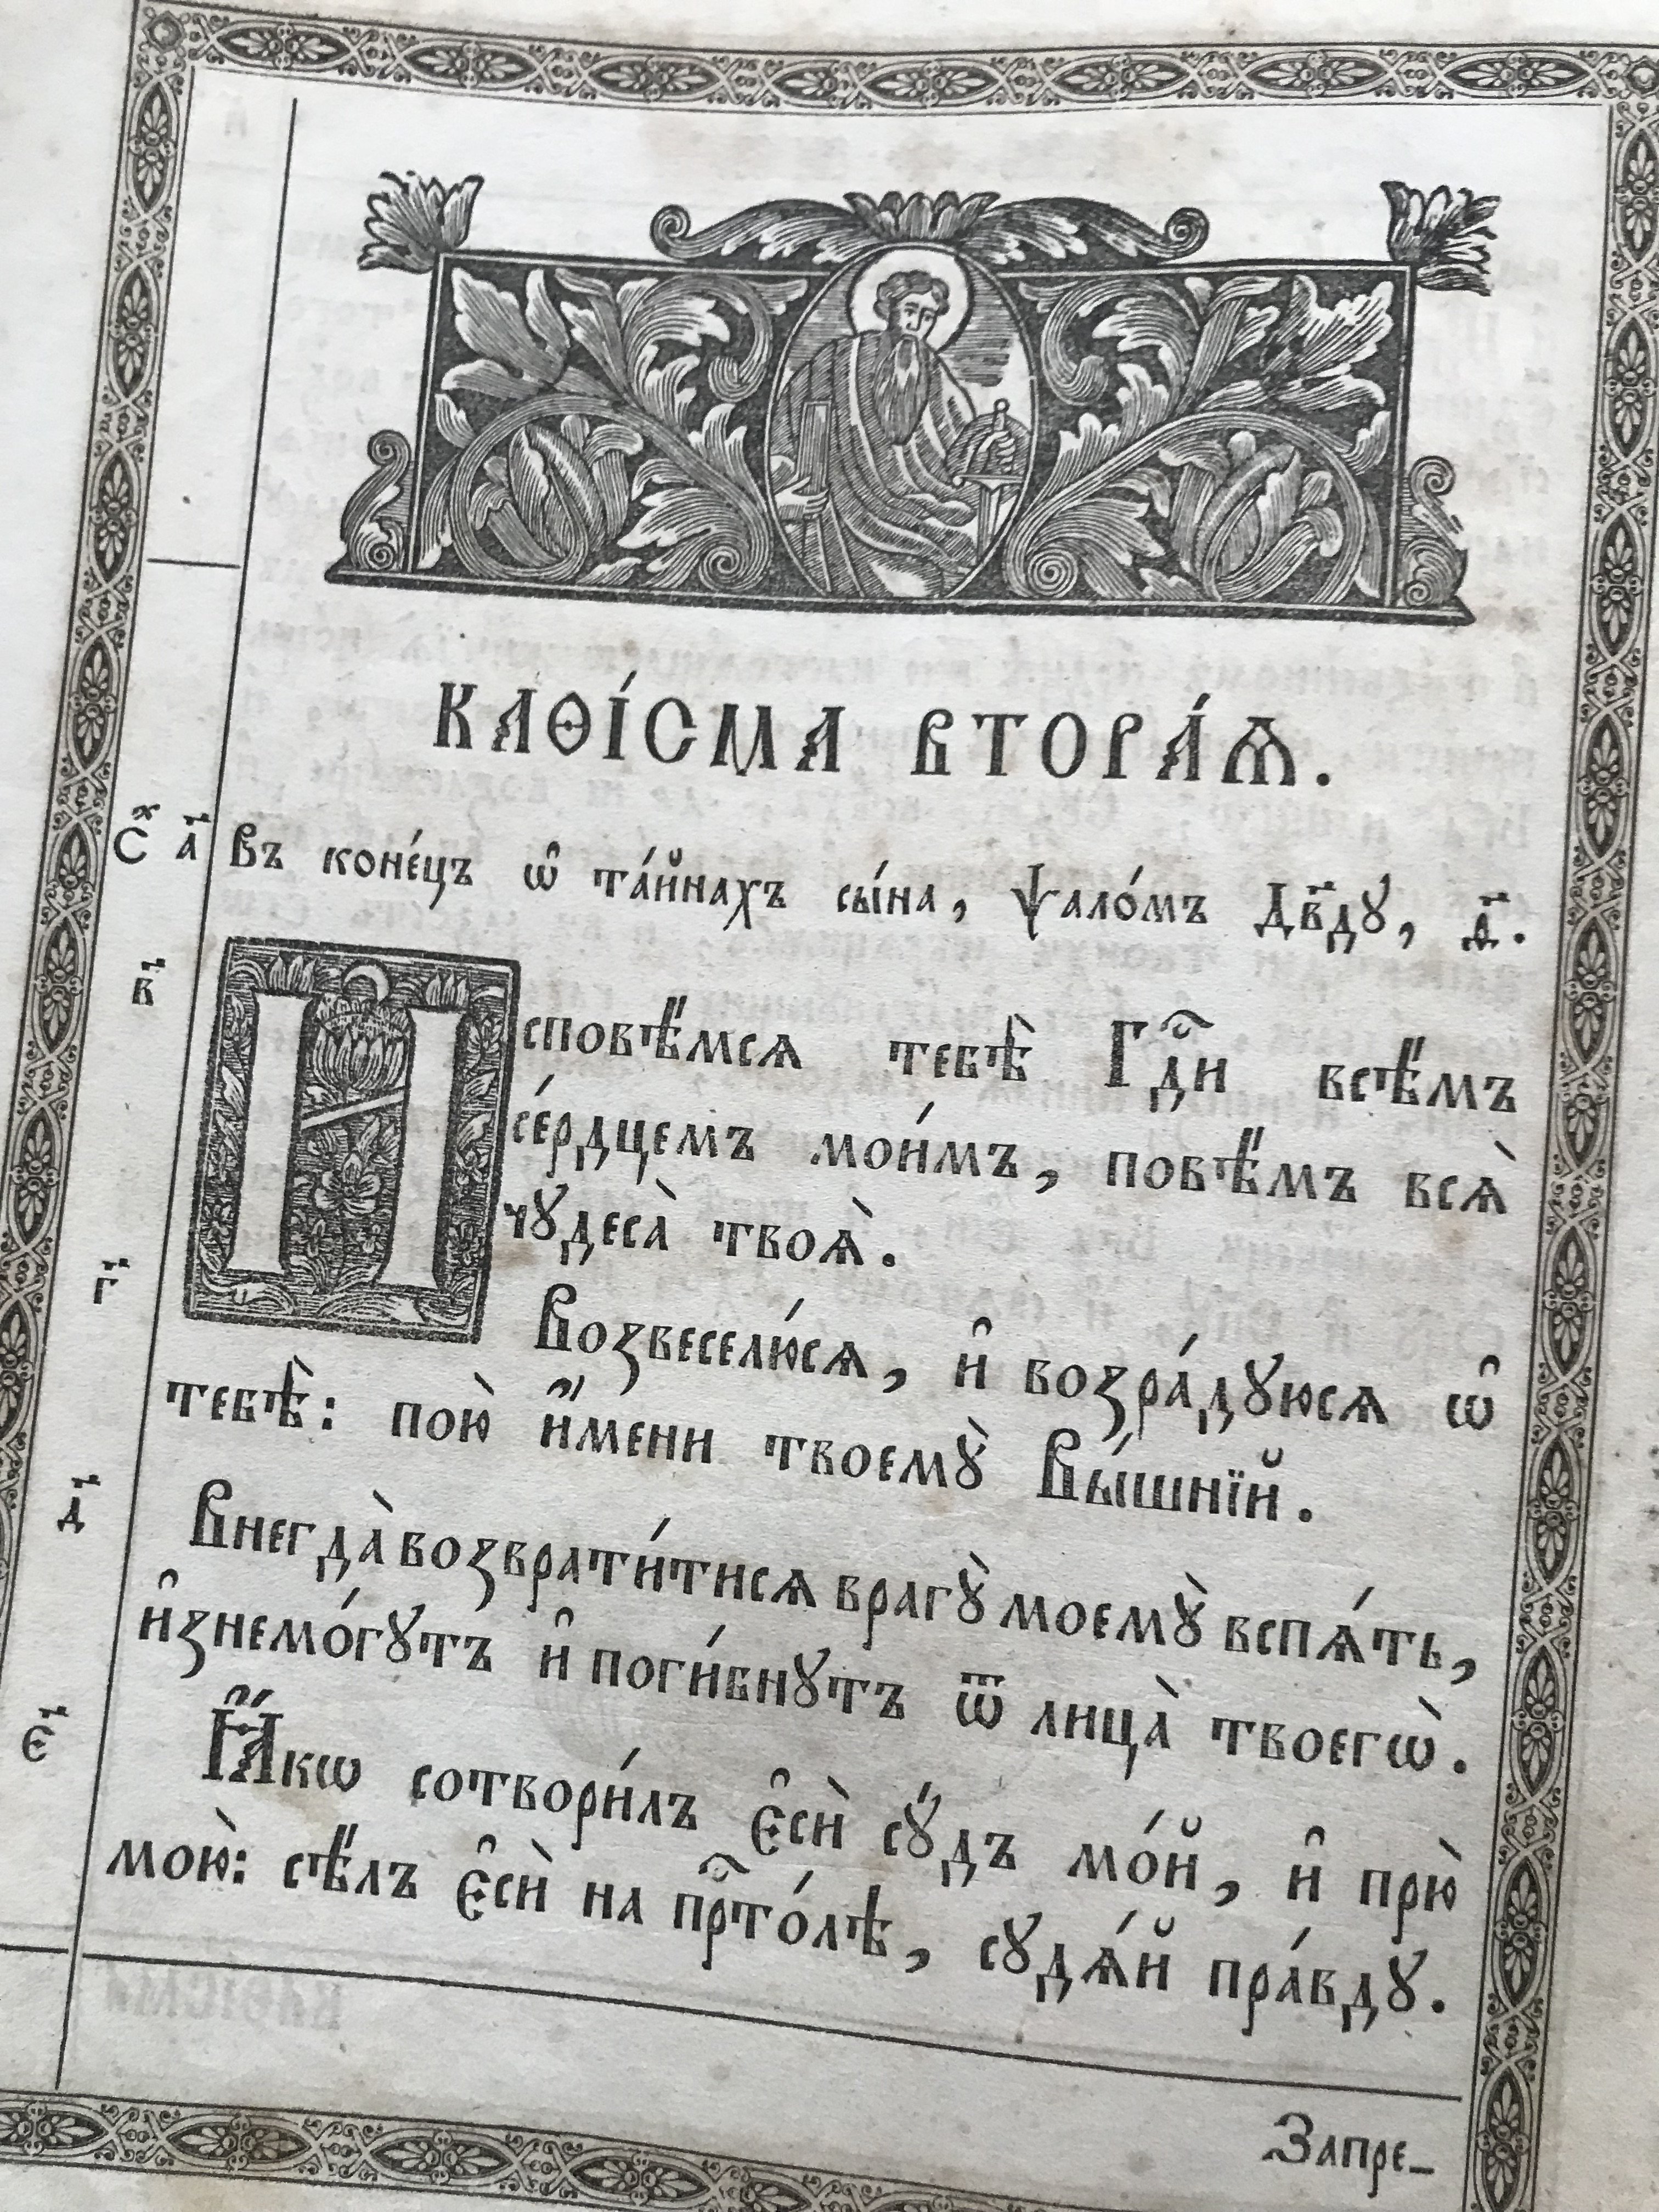 КАѲІ́СМА ВТОРА́Ѧ.
С︮х︯ а҃ Въ коне́цъ ѡ҆ та́йнахъ сы́на, ѱало́мъ Дв҃ду, д҃.
в҃ Исповѣ́мся тебѣ̀ Гдⷭ҇и всѣ́мъ
се́рдцемъ мои́мъ, повѣ́мъ всѧ̀
чꙋдеса̀ твоѧ̀.
г҃ Возвеселю́сѧ, и҆ возра́дꙋюсѧ ѡ҆
тебѣ̀: пою̀ и҆́мени твоемꙋ̀ Вы́шнїй.
д҃ Внегда̀ возврати́тисѧ врагꙋ̀ моемꙋ̀ вспѧ́ть,
и҆знемо́гꙋтъ и҆ поги́бнꙋтъ ѿ лица̀ твоегѡ̀.
є҃ Ꙗ҆́кѡ сотвори́лъ є҆сѝ сꙋ́дъ мо́й, и҆ прю̀
мою̀: сѣ́лъ є҆сѝ на прⷭ҇то́лѣ, сꙋдѧ́й пра́вдꙋ.
Запре-